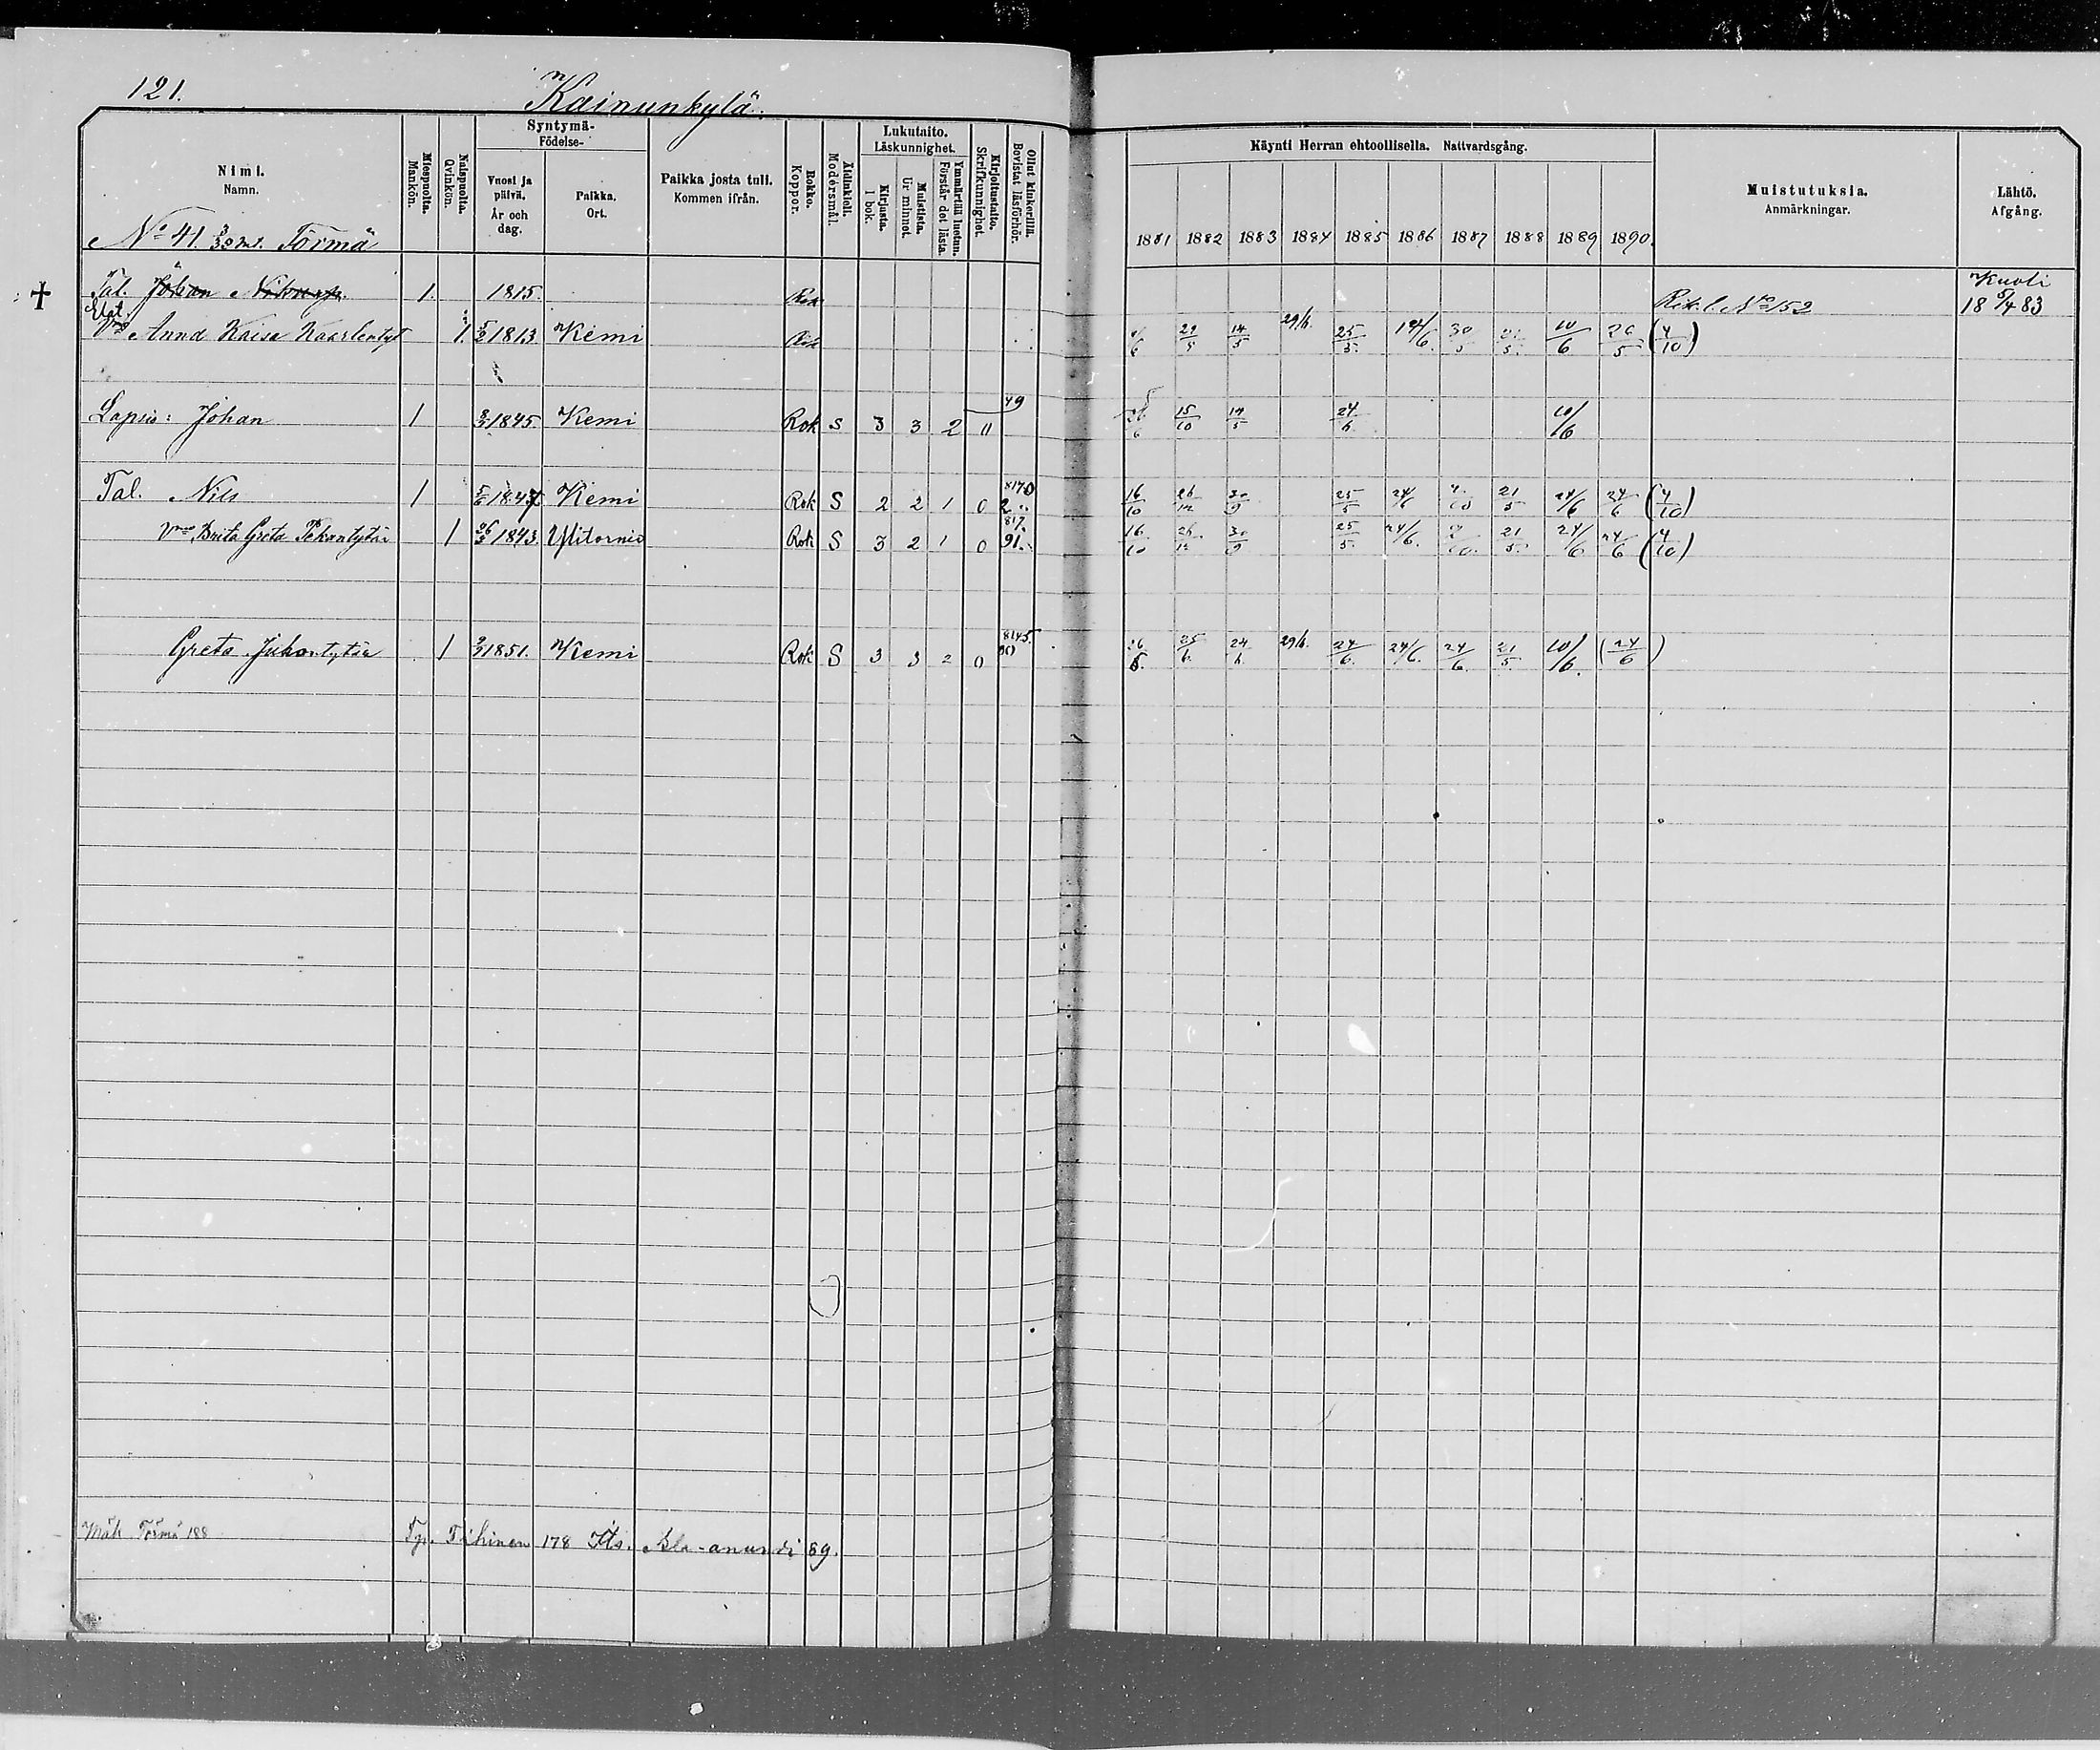 121.
Kainunkylä.
Nimi.
Namn.
Miespuolta.
Mankön.
Naispuolta.
Qvinkön.
Syntymä-
Födelse-
Vuosi ja päivä.
År och dag.
Paikka.
Ort.
Paikka josta tuli.
Kommen ifrån.
Rokko.
Koppor.
Äidinkieli.
Modersmål.
Lukutaito.
Läskunnighet.
Kirjasta.
I bok.
Muistista.
Ur minnet.
Ymmärtää luetun.
Förstår det lästa.
Kirjoitustaito.
Skrifkunnighet.
Ollut kinkerillä.
Bevistat läsförhör.
Käynti Herran ehtoollisella. Nattvardsgång.
1881 1882 1883 1884 1885 1886 1887 1888 1889 1890.
Muistutuksia.
Anmärkningar.
Lähtö.
Afgång.
No 41. Törmä
Tal. Johan 1. 1815. Rok Kuoli
Rik. l. No 152 18 5/4 83
Elät.
Vmo Anna Kaisa Kaarlentyt 1. 5/2 1813 Kemi Rok 29/6. 25/5. 24/6. 30/5 10/6 26/5 (4/10)
Lapsia: Johan 1 1845 Kemi Rok S 3 3 2 0 79 26/6 15/10 14/5 24/6 10/6
Tal. Nils 1 1847 Kemi Rok S 2 2 1 0 16/10 26/12 30/9 25/5 24/6 7/10 21/5 24/6 24/6 (4/10)
Vmo Brita Greta Pekantytär 1 26/3 1843. Ylitornio Rok S 3 2 1 0 91. 16/10 26/12 30/9 25/5. 24/6. 7/10. 21/5. 24/6 24/6 (4/10)
Greta Juhontytär 1 1851. Kemi Rok S 3 3 2 0 90 26/6. 25/6. 24/6. 29/6. 24/6. 24/6. 24/6. 21/5 10/6. (24/6)
Mäk Törmä 188 Tp. Tihinen 178 Its. Ala-anundi 89.